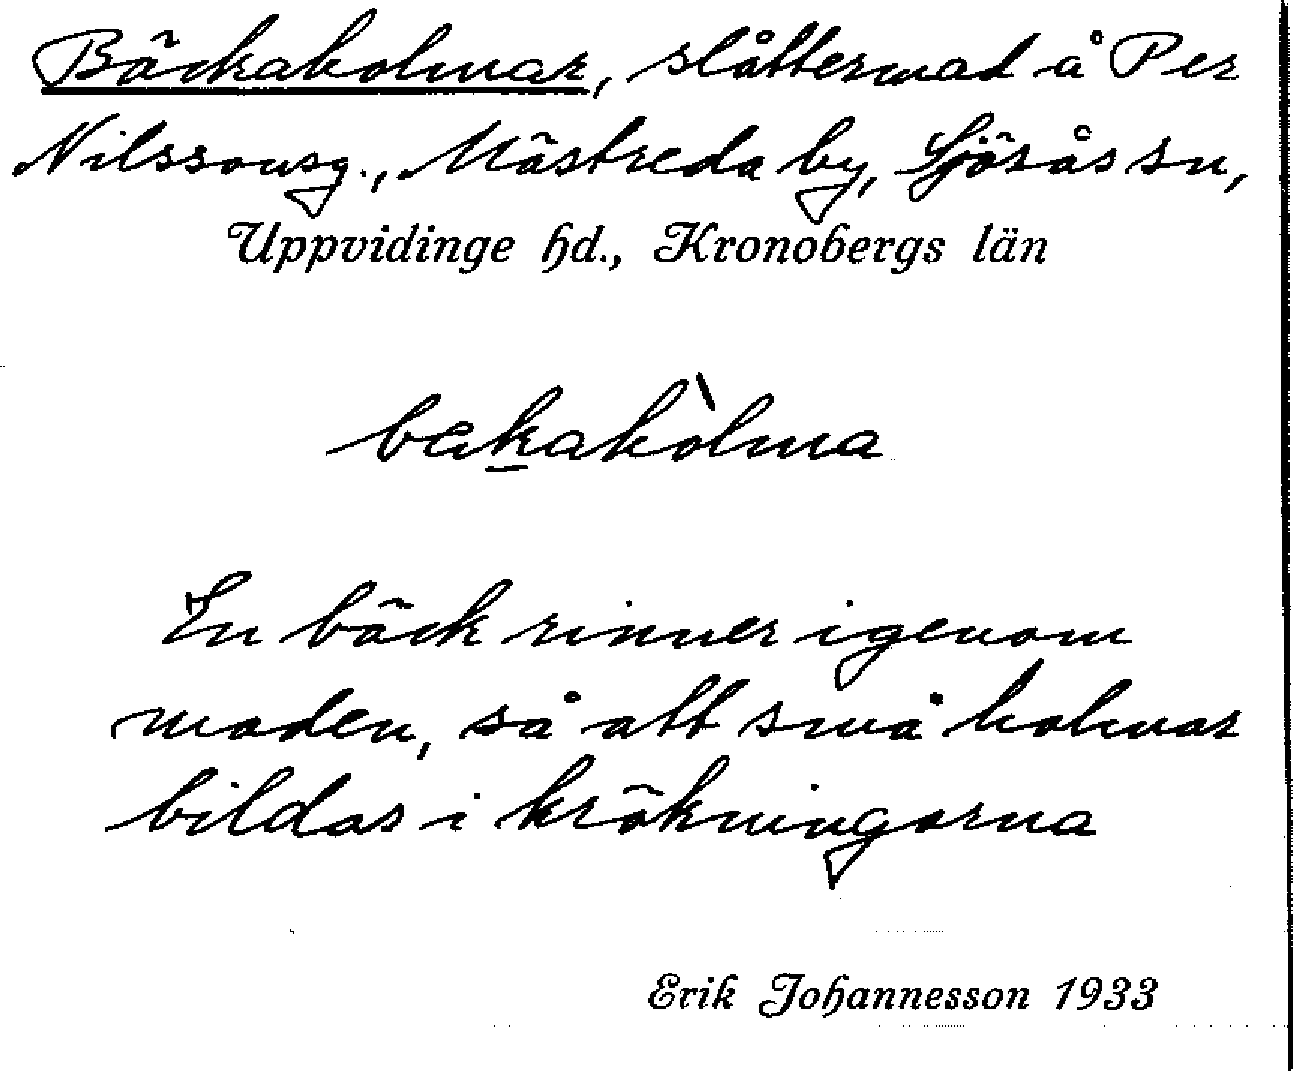 Bäckaholmar, slåttermad å Per
Nilssonsg., Mästreda by, Sjösås sn,
Uppvidinge hd., Kronobergs län
bekahòlma
En bäck rinner igenom
maden, så att små holmar
bildas i krökningarna
Erik Johannesson 1933